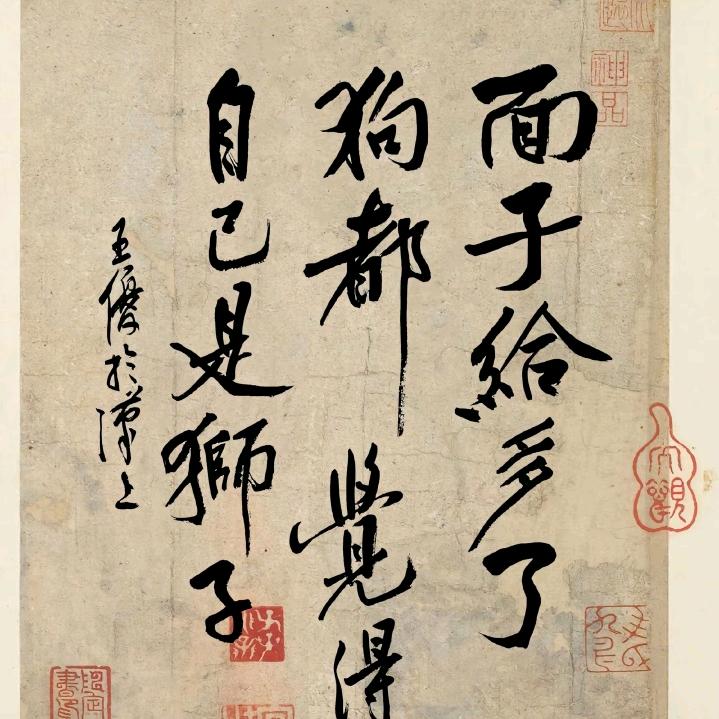 面子給多了
狗都覺得
自己是獅子
王優於漢上